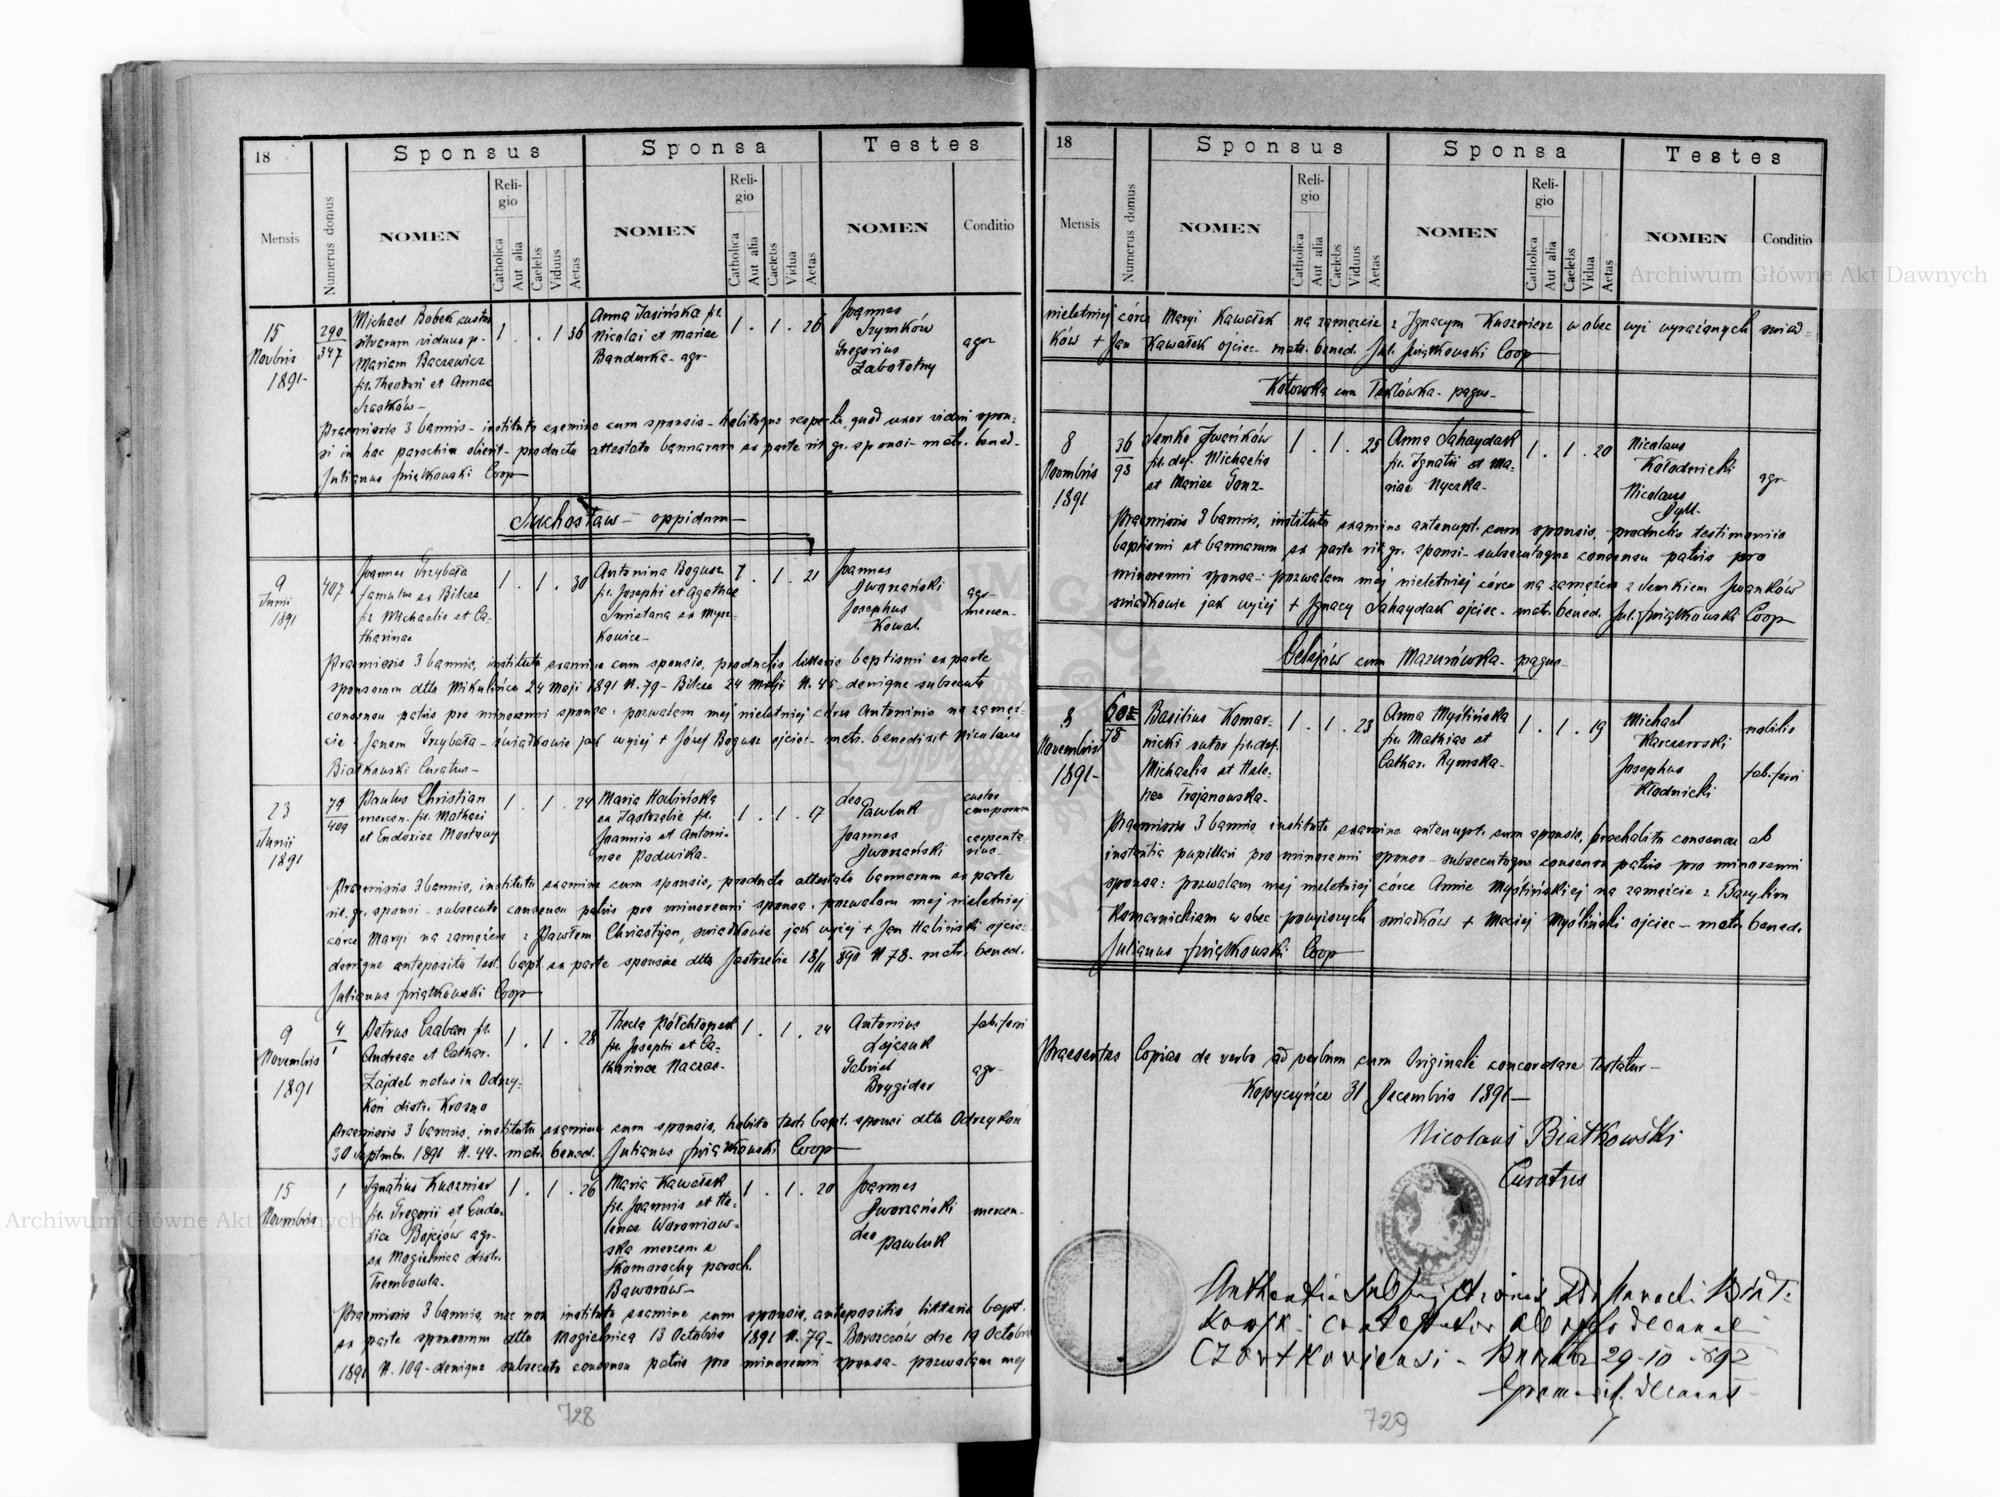 18
Sponsus
Sponsa
Testes
Mensis
Numerus domus
NOMEN
Religio
Catholica
Aut alia
Caelebs
Viduus
Aetas
NOMEN
Religio
Catholica
Aut alia
Caelebs
Vidua
Aetas
NOMEN
Conditio
15
Novbris
1891-
290
347
Michael Bobek custos
silvarum viduus p.
Mariam Baczewicz
fil. Theodori et Annae
1 . . 1 36
Anna Jasińska fil.
Nicolai et Mariae
Bandurka - agr
1 . 1 . 26
Joannes
Szymków
Gregorius
Zabołotny
agr
Praemissis 3 bannis - instituto examine cum sponsis - habitoque respectu, quod uxor vidui spon-
si in hac parochia obiit - producto attestato bannorum ex parte rit. gr. sponsi - matr. bened.
Julianus Świątkowski Coop
Suchostaw - oppidum -
9
Junii
1891
407
Joannes Przybała
famulus ex Bilcze
fil Michaelis et Ca-
tharinae
1 . 1 . 30
Antonina Bogusz
fil. Josephi et Agathae
Smietana ex Mysz-
kowice -
1 . 1 . 21
Joannes
Dworzański
Josephus
Kowal.
agr
mercen -
Praemissis 3 bannis, instituto examine cum sponsis, productis litteris baptismi ex parte
sponsorum dtto Mikulińce 24 Maji 1891 N. 79 - Bilcze 24 Maji N. 45 - denique subsecuto
consensu patris pro minorenni sponsa: pozwalam mej nieletniej córce Antoninie na zamęż-
cie z Janem Przybała - świadkowie jak wyżej + Józef Bogusz ojciec - matr. benedixit Nicolaus
Białkowski Curatus -
23
Junii
1891
79
409
Paulus Christian
mercen. fil. Mathaei
et Eudoxiae Mostowy
1 . 1 . 24
Maria Halińska
ex Jastrzębie fil.
Joannis et Antoni-
nae Podwika -
1 . 1 . 17
Leo
Pawluk
Joannes
Dworzański
custos
camporum
carpenta-
rius -
Praemissis 3 bannis, instituto examine cum sponsis, producto attestato bannorum ex parte
rit. gr. sponsi - subsecuto consensu patris pro minorenni sponsa. pozwalam mej nieletniej
córce Maryi na zamęźcie z Pawłem Christyan, świadkowie jak wyżej + Jan Haliński ojciec
denique anteposito test. bapt. ex parte sponsae dtto Jastrzebie 18/11 890 N 78 - matr. bened.
Julianus Świątkowski Coop
9
Novembris
1891
4
1
Petrus Czaban fil.
Andreae et Cathar.
Zajdel natus in Odrzy-
koń distr. Krosno
1 . 1 . 28
Thecla Półchłopek
fil. Josephi et Ca-
tharinae Naczas -
1 . 1 . 24
Antonius
Łojczuk
Gabriel
Brygider
fab. ferri
agr -
Praemissis 3 bannis, instituto examine cum sponsis, habito test. bapt. sponsi dtto Odrzykoń
30 Septmbr. 1891 N. 44 - matr. bened. Julianus Świątkowski Coop
15
Novmbris
1
Ignatius Kuszmier
fil. Gregorii et Eudo-
xiae Bojców agr -
ex Mogielnica distr.
Trembowla -
1 . 1 . 26
Maria Kawałek
fil. Joannis et He-
lenae Woroniow-
ska mercen. e
Skomorochy paroch.
Baworów -
1 . 1 . 20
Joannes
Dworzański
Leo
Pawluk
mercen -
Praemissis 3 bannis, nec non instituto examine cum sponsis, antepositis litteris bapt.
ex parte sponsorum dtto Mogielnica 13 Octobris 1891 N. 79 - Borszczów die 19 Octobris
1891 N. 109 - denique subsecuto consensu patris pro minorenni sponsa - pozwalam mej
728
18
Sponsus
Sponsa
Testes
Mensis
Numerus domus
NOMEN
Religio
Catholica
Aut alia
Caelebs
Viduus
Aetas
NOMEN
Religio
Catholica
Aut alia
Caelebs
Vidua
Aetas
NOMEN
Conditio
nieletniej córce Maryi Kawałek na zamęzcie z Ignacym Kuszmierz wobec wyż wyrażonych świad-
ków + Jan Kawałek ojciec - matr. bened. Jul. Świątkowski Coop
Kotowska cum Teklówka - pagus -
8
Novmbris
1891
36
98
Semko Iwańków
fil. def. Michaelis
et Mariae Gonz -
1 . 1 . 25
Anna Sahaydak
fil. Ignatii et Ma-
riae Nyczka -
1 . 1 . 20
Nicolaus
Kołodnicki
Nicolaus
Dyll.
agr
Praemissis 3 bannis, instituto examine antenupt. cum sponsis, productis testimoniis
baptismi et bannorum ex parte rit. gr. sponsi - subsecutoque consensu patris pro
minorenni sponsa: pozwalam mej nieletniej córce na zamęźcie z Semkiem Iwańków
świadkowie jak wyżej + Ignacy Sahaydak ojciec - matr. bened. Jul. Świątkowski Coop
Celejów cum Mazurówka - pagus -
3
Novembris
1891 -
78
Basilius Komar-
nicki sutor fil. def.
Michaelis et Hele-
nae Trojanowska -
1 . 1 . 23
Anna Myślińska
fil. Mathias et
Cathar. Rymska -
1 . 1 . 19
Michael
Karczewski
Josephus
Kłodnicki
nobilis
fab. ferri
Praemissis 3 bannis instituto examine antenupt. cum sponsis, praehabito consensu ab
instantia pupillari pro minorenni sponso - subsecutoque consensu patris pro minorenni
sponsa: pozwalam mej nieletniej córce Annie Myślińskiej na zamęźcie z Bazylim
Komarnickiem wobec powyższych świadków + Maciej Myśliński ojciec - matr. bened.
Julianus Świątkowski Coop
Praesentes Copias de verbo ad verbum cum Originali concordare testatur -
Kopyczyńce 31 Decembris 1891 -
Nicolaus Białkowski
Curatus
Czortkoviensi - 29-10-892
729
Archiwum Główne Akt Dawnych
Archiwum Główne Akt Dawnych